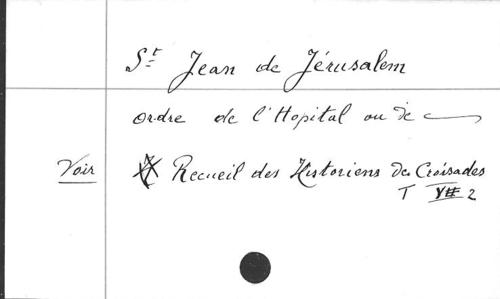 St Jean de Jérusalem
ordre de l'Hopital ou de —
Voir Recueil des Historiens des Croisades
T VII 2